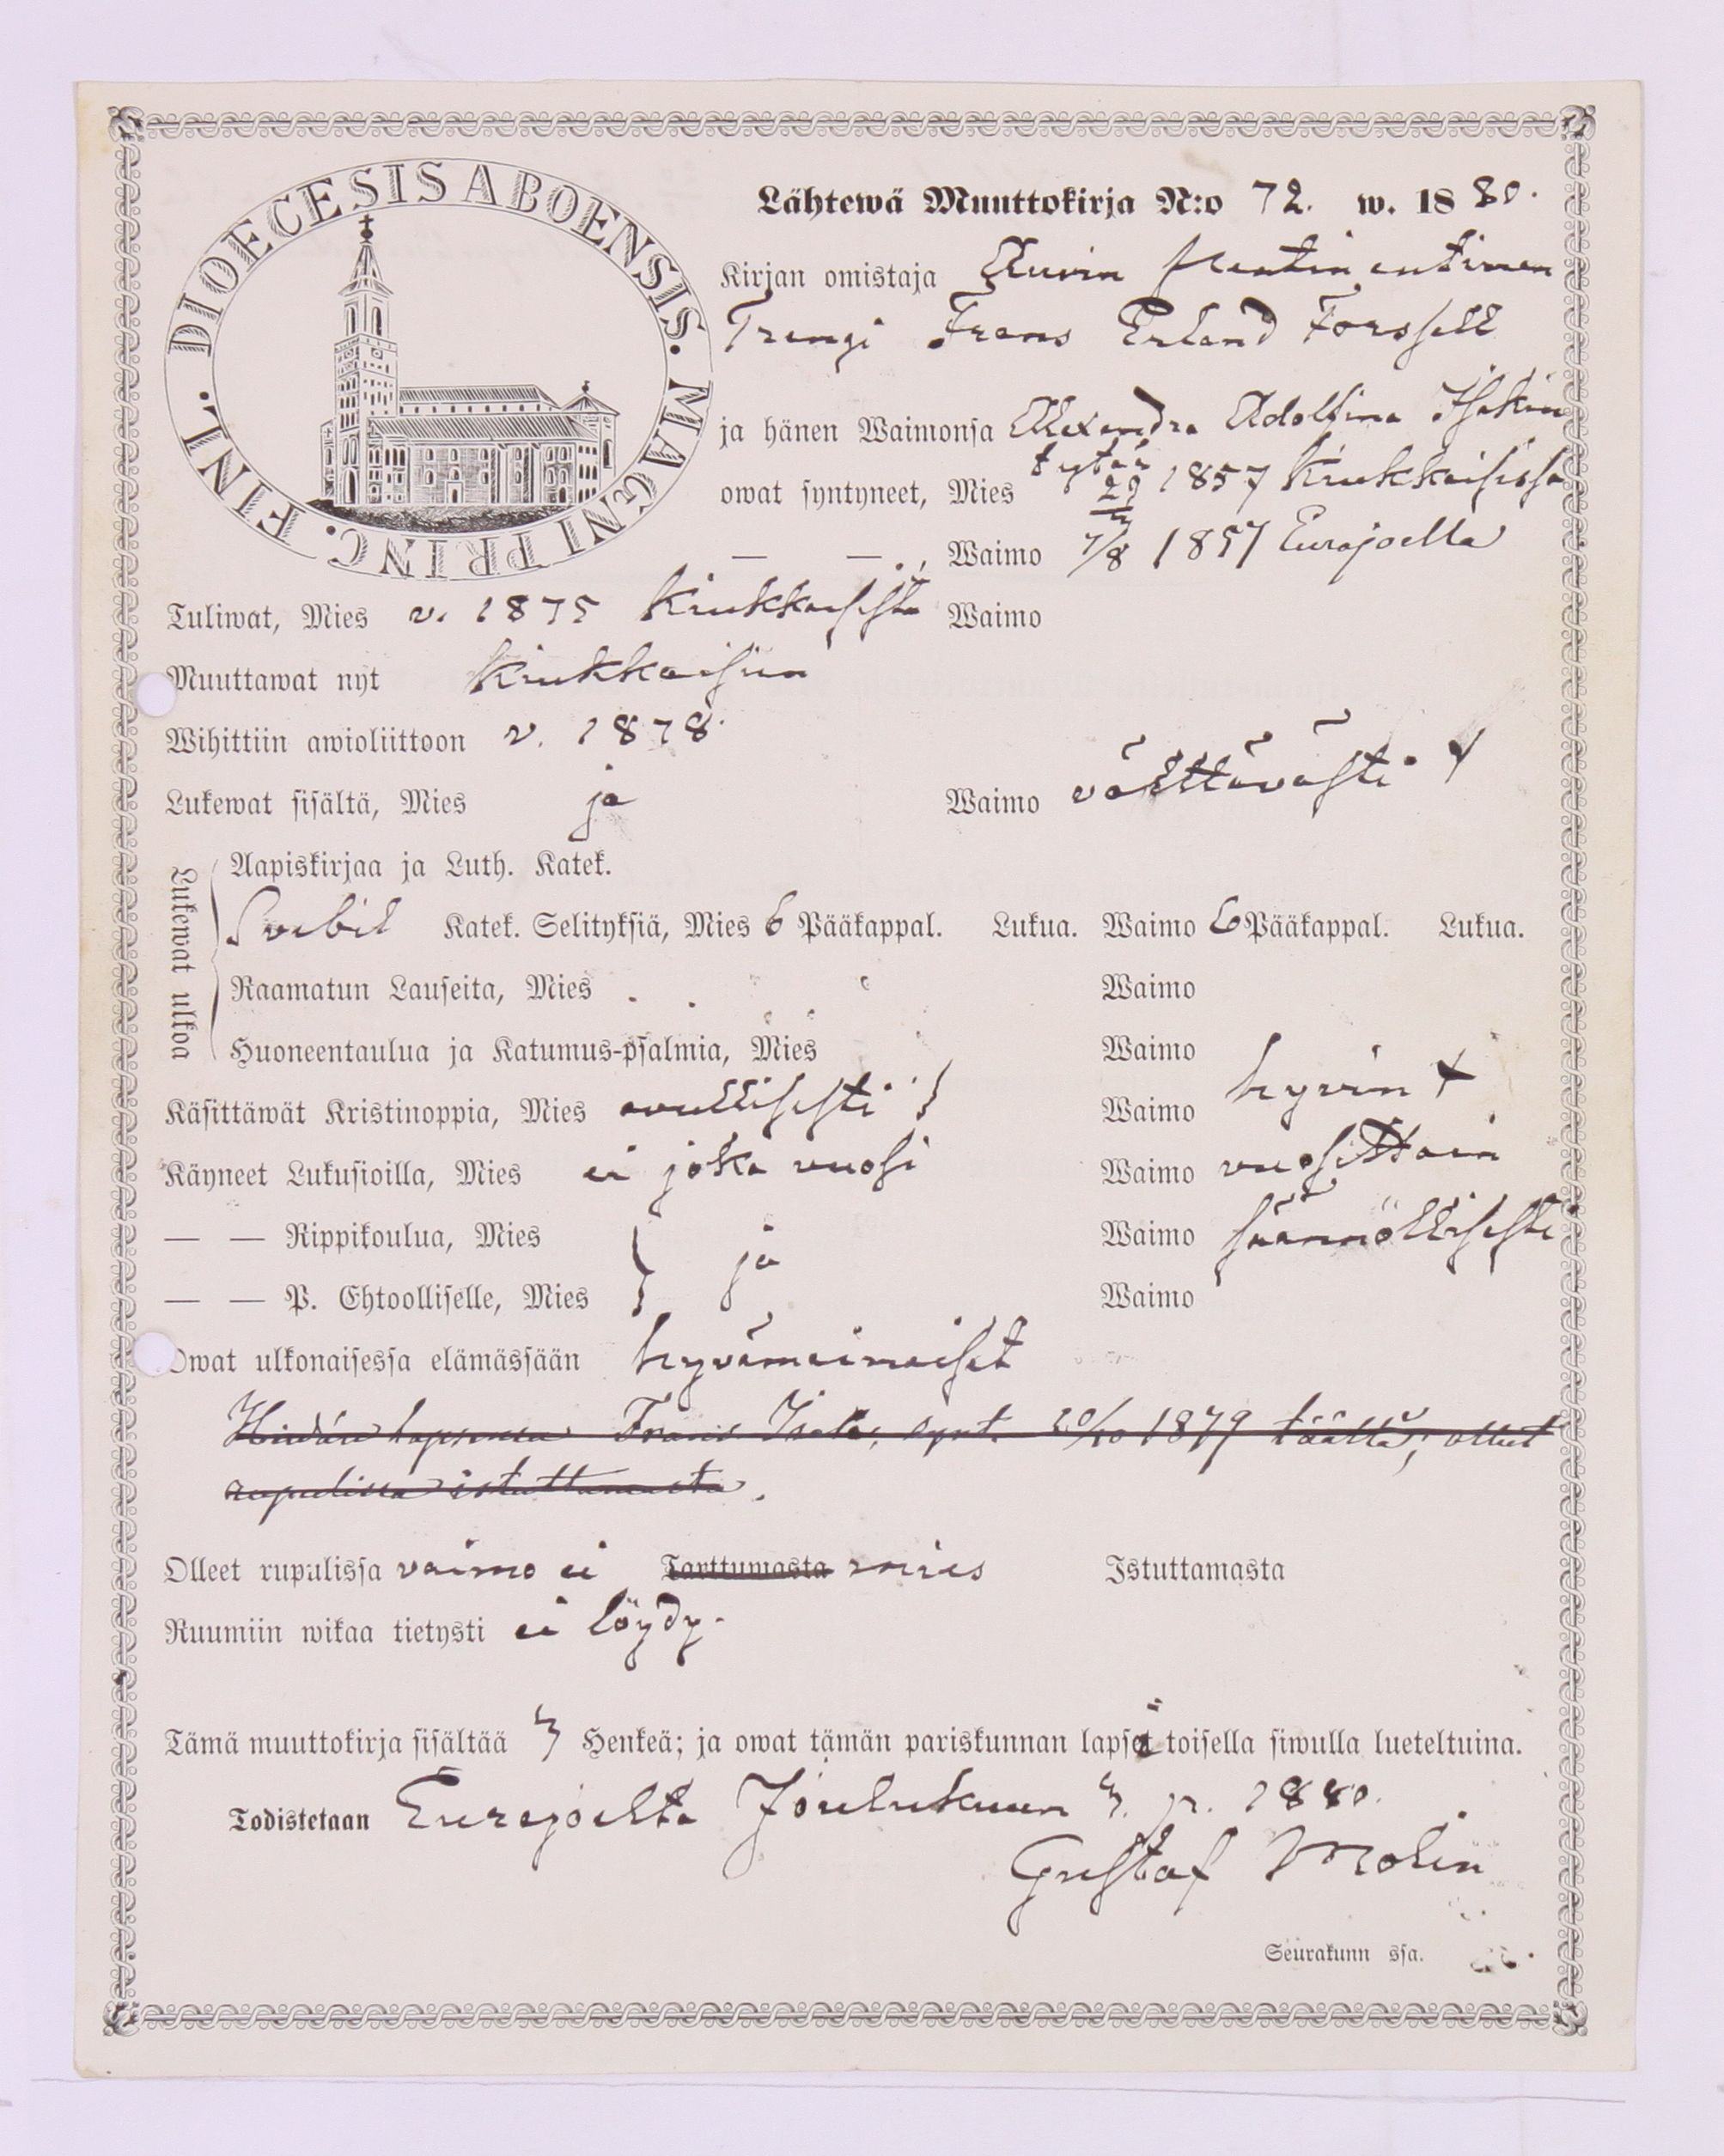 DIOECESIS ABOENSIS. MAGNI PRINC. FINL.
Lähtewä Muuttokirja N:o 72. w. 1880.
Kirjan omistaja entinen
Trengi Frans Erland Forssell
ja hänen Waimonsa Alexandra Adolfina Isakin
tytär
owat syntyneet, Mies 29 1857 Kiukkaisissa
— — Waimo 7/8 1857 Eurajoella
Tuliwat, Mies v. 1875 Kiukkaisista Waimo
Muuttawat nyt Kiukkaisiin
Wihittiin awioliittoon v. 1878.
Lukewat sisältä, Mies ja Waimo välttävästi
Lukewat ulkoa
Aapiskirjaa ja Luth. Katek.
Svebil Katek. Selityksiä, Mies 6 Pääkappal. Lukua. Waimo 6 Pääkappal. Lukua.
Raamatun Lauseita, Mies Waimo
Huoneentaulua ja Katumus-psalmia, Mies Waimo
Käsittäwät Kristinoppia, Mies avullisesti Waimo hyvin
Käyneet Lukusioilla, Mies ei joka vuosi Waimo vuosittain
— — Rippikoulua, Mies ja Waimo säännöllisesti
— — P. Ehtoolliselle, Mies Waimo
Owat ulkonaisessa elämässään hyvämainaiset
Heidän lapsensa Frans Isak, synt. 20/10 1879 täällä, ollut
rupulissa istuttamasta.
Olleet rupulissa vaimo ei Tarttumasta mies Istuttamasta
Ruumiin wikaa tietysti ei löydy.
Tämä muuttokirja sisältää 3 Henkeä; ja owat tämän pariskunnan lapsi toisella siwulla lueteltuina.
Todistetaan Eurajoelta Joulukuun 3. p. 1880.
Gustaf Molin
Seurakunn ssa.